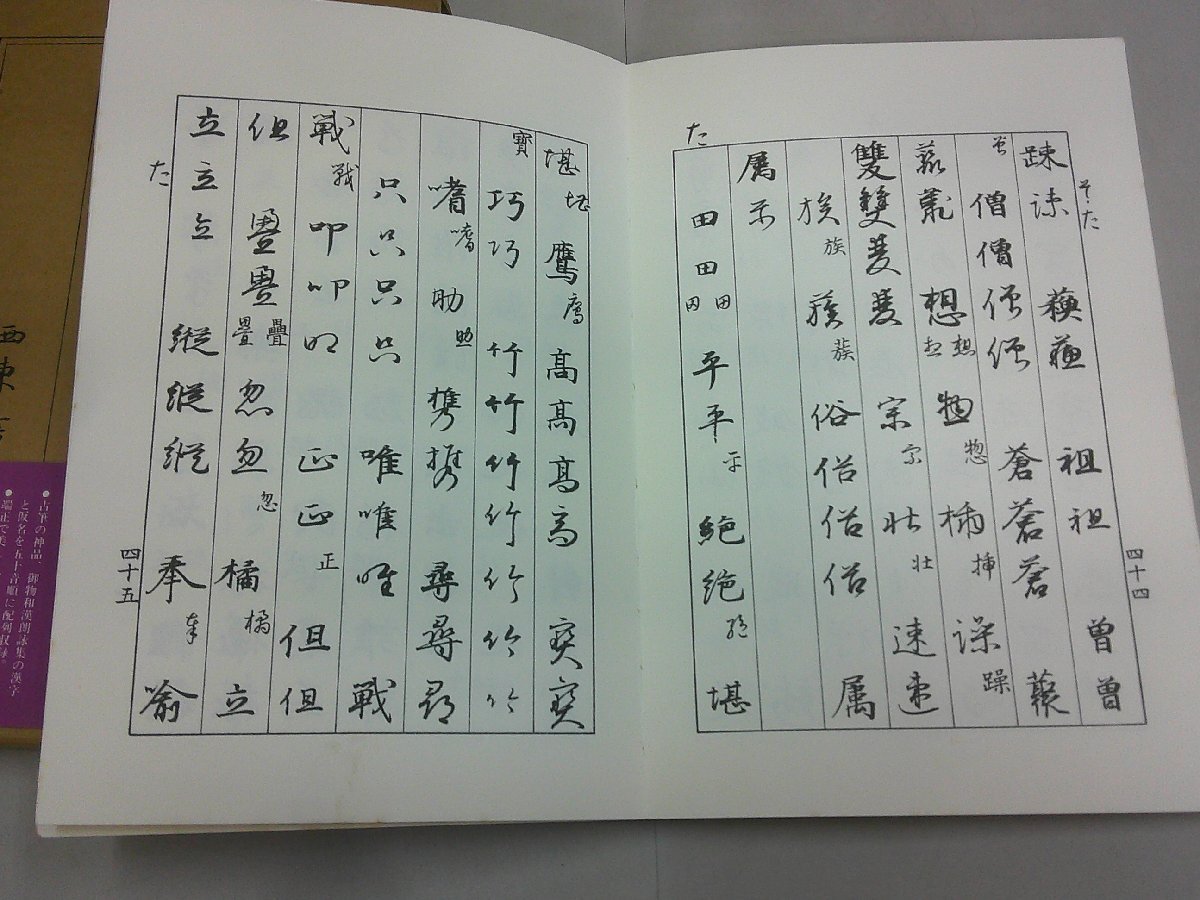 そ・た
踈 疎 蘇 蘇 祖 祖 曽 曽
曽 僧 僧 僧 僧 蒼 蒼 蒼 叢
叢 叢 想 想 想 惣 惣 揷 挿 譟 躁
雙 雙 雙 雙 宗 宗 壮 壮 速 速
族 族 蔟 蔟 俗 俗 俗 俗 属
四十四
た
属 属
田 田 田 田 平 平 平 絶 絶 絶 堪
堪 堪 鷹 鷹 高 高 高 高 寳 寳
寳 巧 巧 竹 竹 竹 竹 竹 竹 竹
嗜 嗜 助 助 携 携 尋 尋 尋
只 只 只 只 唯 唯 唯 戦
戦 戦 叩 叩 叩 正 正 正 但 但
但 疊 疊 疊 疊 忽 忽 忽 橘 橘 立
立 立 立 縦 縦 縦 奉 奉 喩
た
四十五
●古筆の神品 御物和漢朗詠集の漢字
と仮名を五十音順に配列収録。